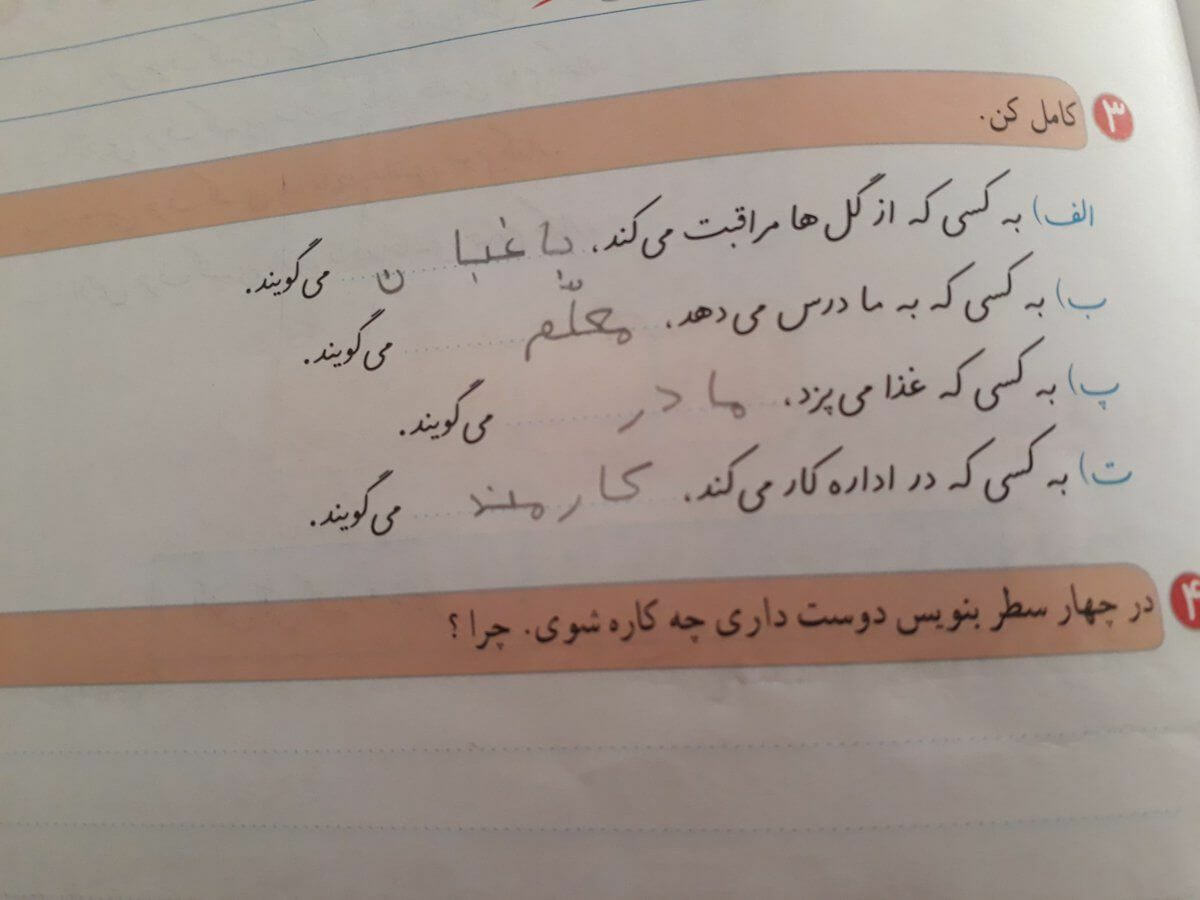 ۳ کامل کن.
الف) به کسی که از گل ها مراقبت می‌کند، باغبان می‌گویند.
ب) به کسی که به ما درس می‌دهد، معلّم می‌گویند.
پ) به کسی که غذا می‌پزد، مادر می‌گویند.
ت) به کسی که در اداره کار می‌کند، کارمند می‌گویند.
۴ در چهار سطر بنویس دوست داری چه کاره شوی. چرا ؟